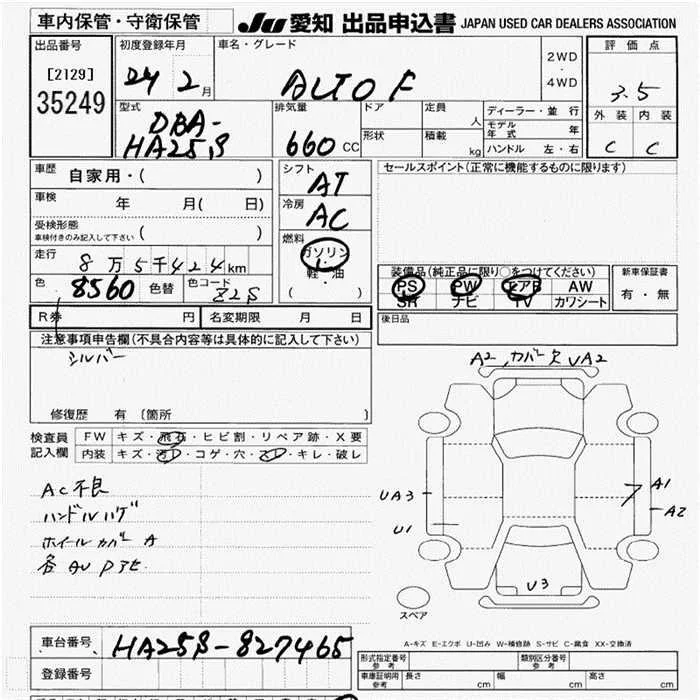 車内保管・守衛保管
JU 愛知 出品申込書 JAPAN USED CAR DEALERS ASSOCIATION
出品番号
[2129]
35249
初度登録年月
24 2月
車名・グレード
ALTO F
2WD
・
4WD
評価点
3.5
外装 内装
C C
型式
DBA-
HA25S
排気量
660 CC
ドア
形状
定員
人
積載
kg
ディーラー・並行
モデル年式 年
ハンドル 左・右
車歴
自家用・( )
車検
年 月( 日)
受検形態
車検付きのみ記入して下さい ( )
走行
8万5千424km
色
8560 色替
色コード
Z2S
シフト
AT
冷房
AC
燃料
ガソリン
・
軽・油
・
( )
セールスポイント(正常に機能するものに限ります)
装備品(純正品に限り○をつけてください)
PS PW エアB AW
SR ナビ TV カワシート
新車保証書
有・無
R券 円 名変期限 月 日
後日品
注意事項申告欄(不具合内容等は具体的に記入して下さい)
シルバー
修復歴 有 〔箇所 〕
検査員
記入欄
FW キズ・飛石・ヒビ割・リペア跡・X要
内装 キズ・汚レ・コゲ・穴・スレ・キレ・破レ
AC不良
ハンドルハゲ
ホイールカバー A
各AU Pアセ
A2 カバー欠 UA2
UA3
U1
A1
A2
U3
スペア
A-キズ E-エクボ U-凹み W-補修跡 S-サビ C-腐食 XX-交換済
車台番号
HA25S-827465
登録番号
形式指定番号
参考
類別区分番号
参考
車庫証明用
参考
長さ cm 幅 cm 高さ cm